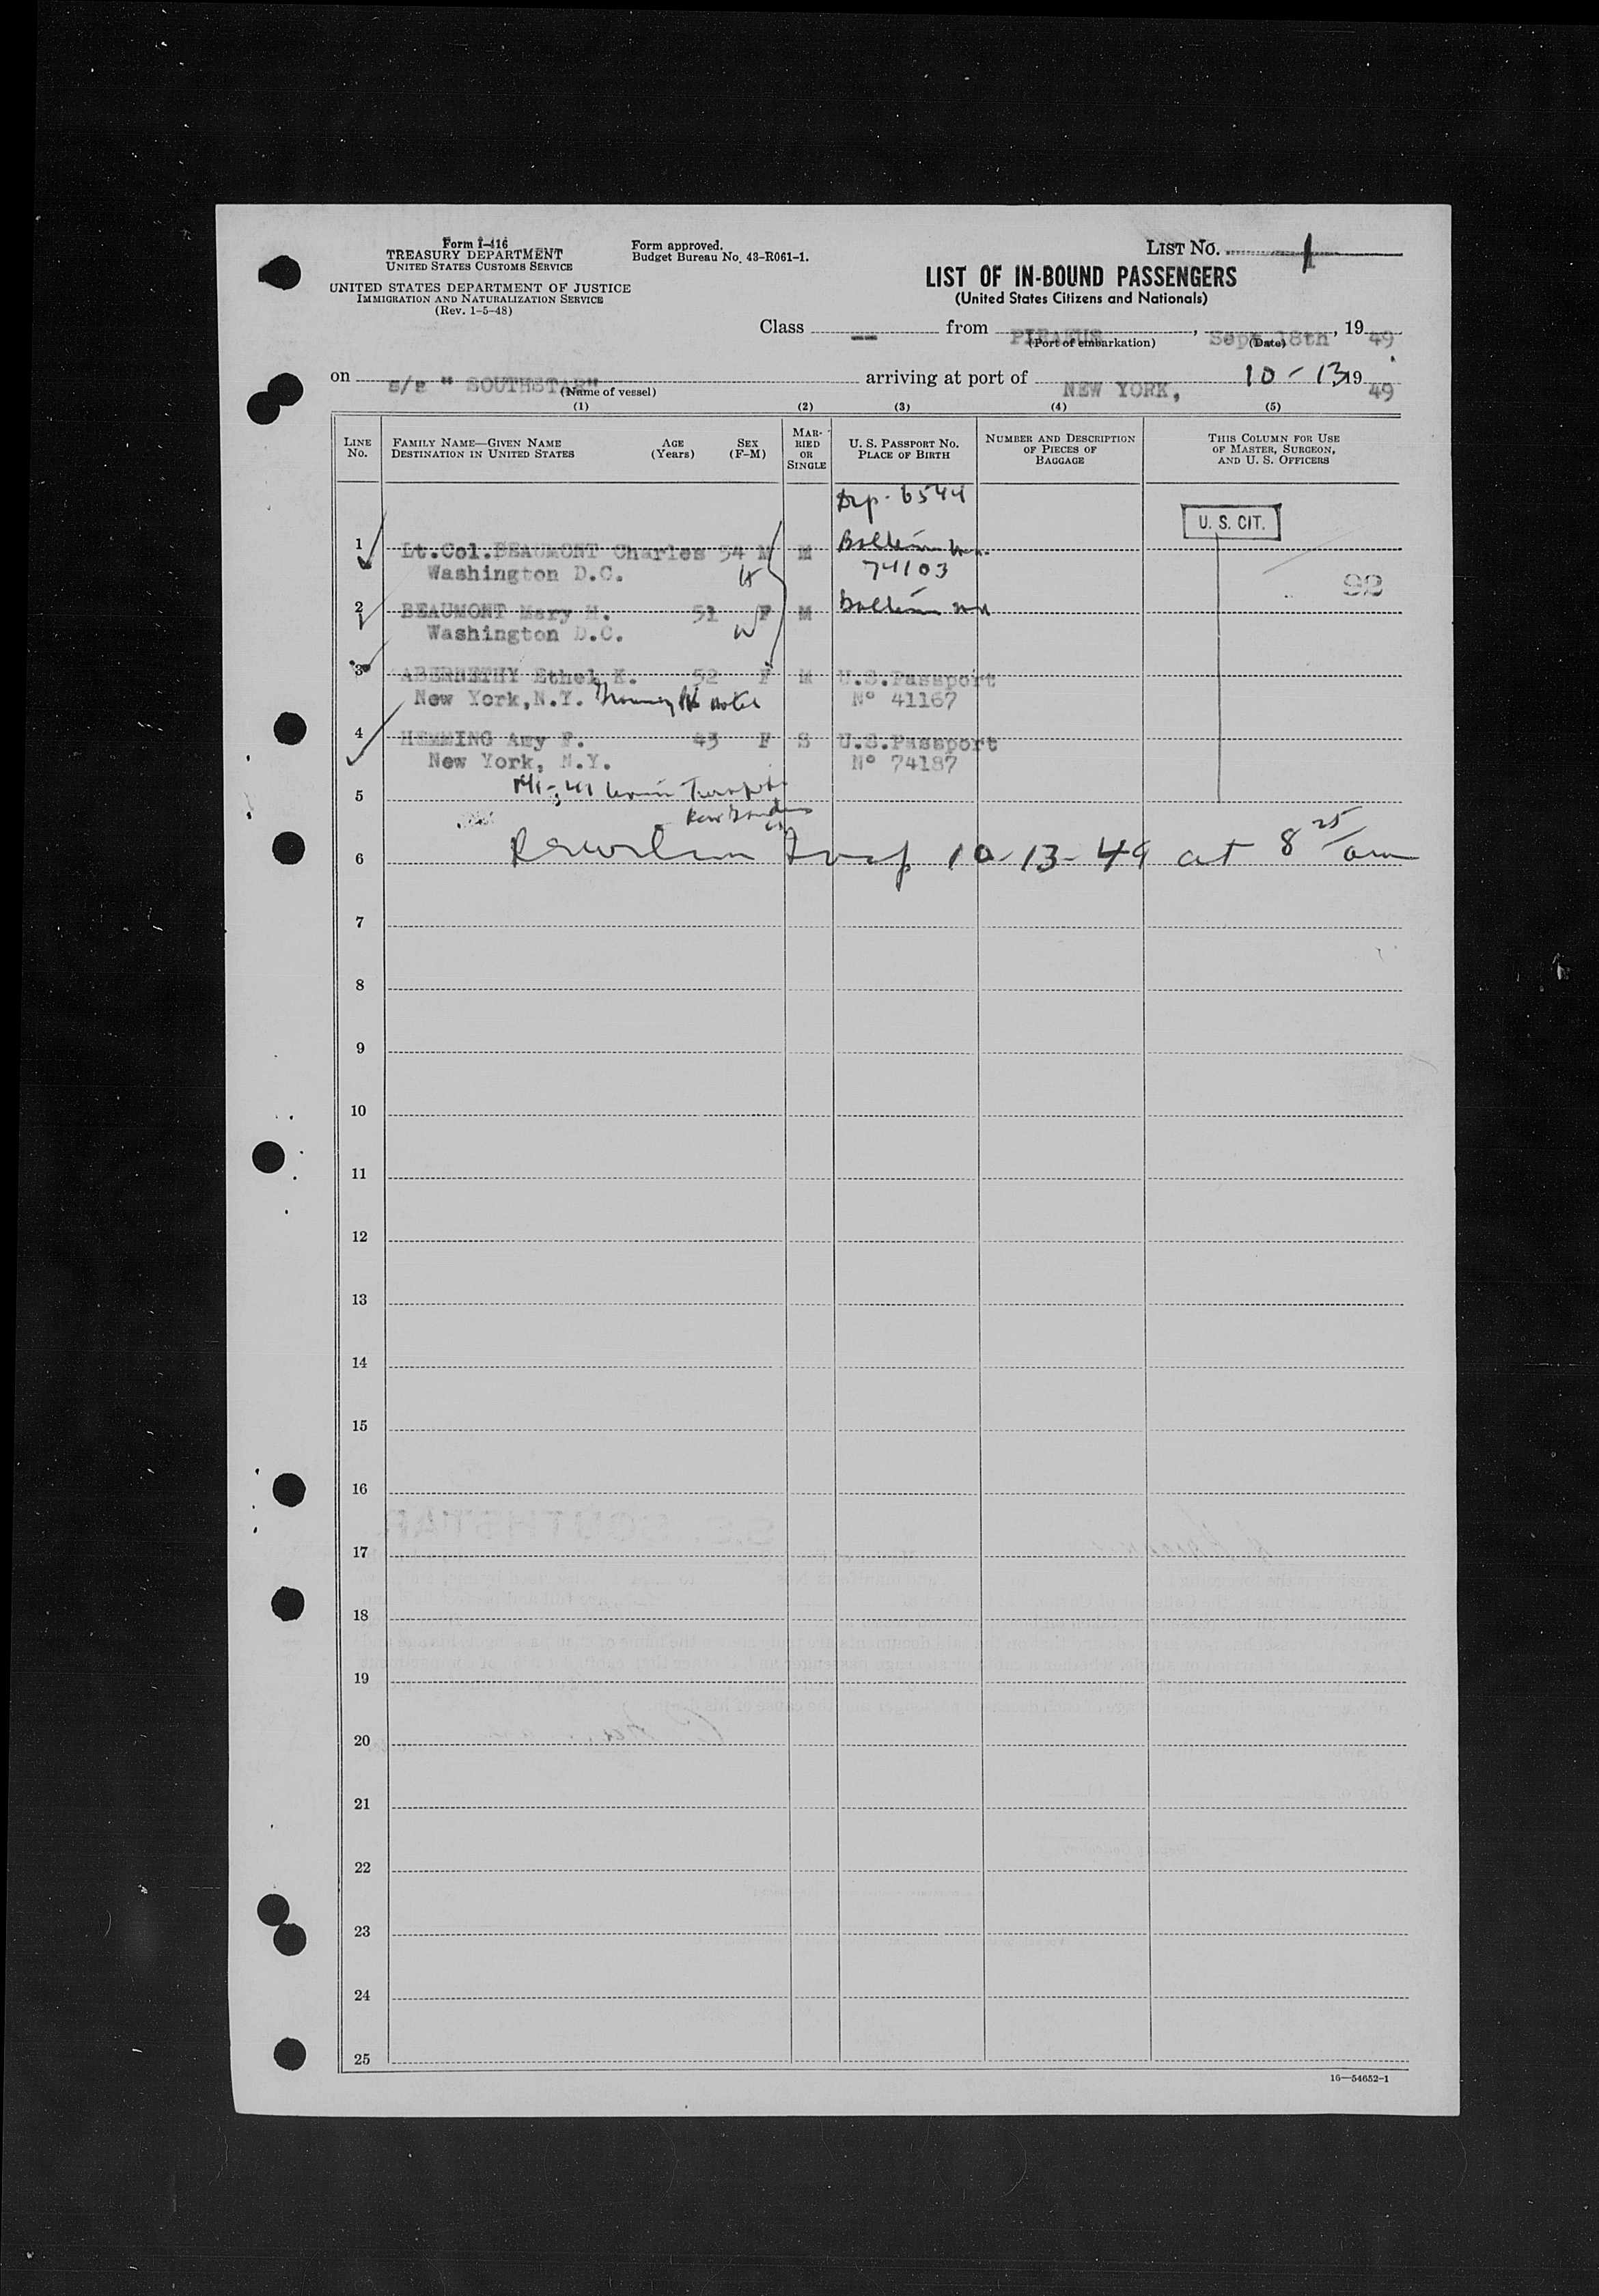 Form I-416
TREASURY DEPARTMENT
UNITED STATES CUSTOMS SERVICE
UNITED STATES DEPARTMENT OF JUSTICE
IMMIGRATION AND NATURALIZATION SERVICE
(Rev. 1-5-48)
Form approved.
Budget Bureau No. 43-R061-1.
LIST NO. 1
LIST OF IN-BOUND PASSENGERS
(United States Citizens and Nationals)
Class -- from PIRAEUS, Sept 18th, 1949
(Port of embarkation) (Date)
on s/s " SOUTHSTAR" arriving at port of NEW YORK, 10-13 1949
(Name of vessel)
(1) (2) (3) (4) (5)
LINE No. FAMILY NAME—GIVEN NAME DESTINATION IN UNITED STATES AGE (Years) SEX (F-M) MARRIED OR SINGLE U. S. PASSPORT NO. PLACE OF BIRTH NUMBER AND DESCRIPTION OF PIECES OF BAGGAGE THIS COLUMN FOR USE OF MASTER, SURGEON, AND U. S. OFFICERS
6544
U. S. CIT.
1 Lt.Col.BEAUMONT Charles 54 M M
Washington D.C. H 74103 92
2 BEAUMONT Mary H. 51 F M
Washington D.C. W
3 ABERNETHY Ethel K. 52 F M U.S.Passport
New York,N.Y. Nº 41167
4 HEMMING Amy F. 43 F S U.S.Passport
New York, N.Y. Nº 74187
5
6 10-13-49 at 8 25/am
7
8
9
10
11
12
13
14
15
16
17
18
19
20
21
22
23
24
25
16—54652-1